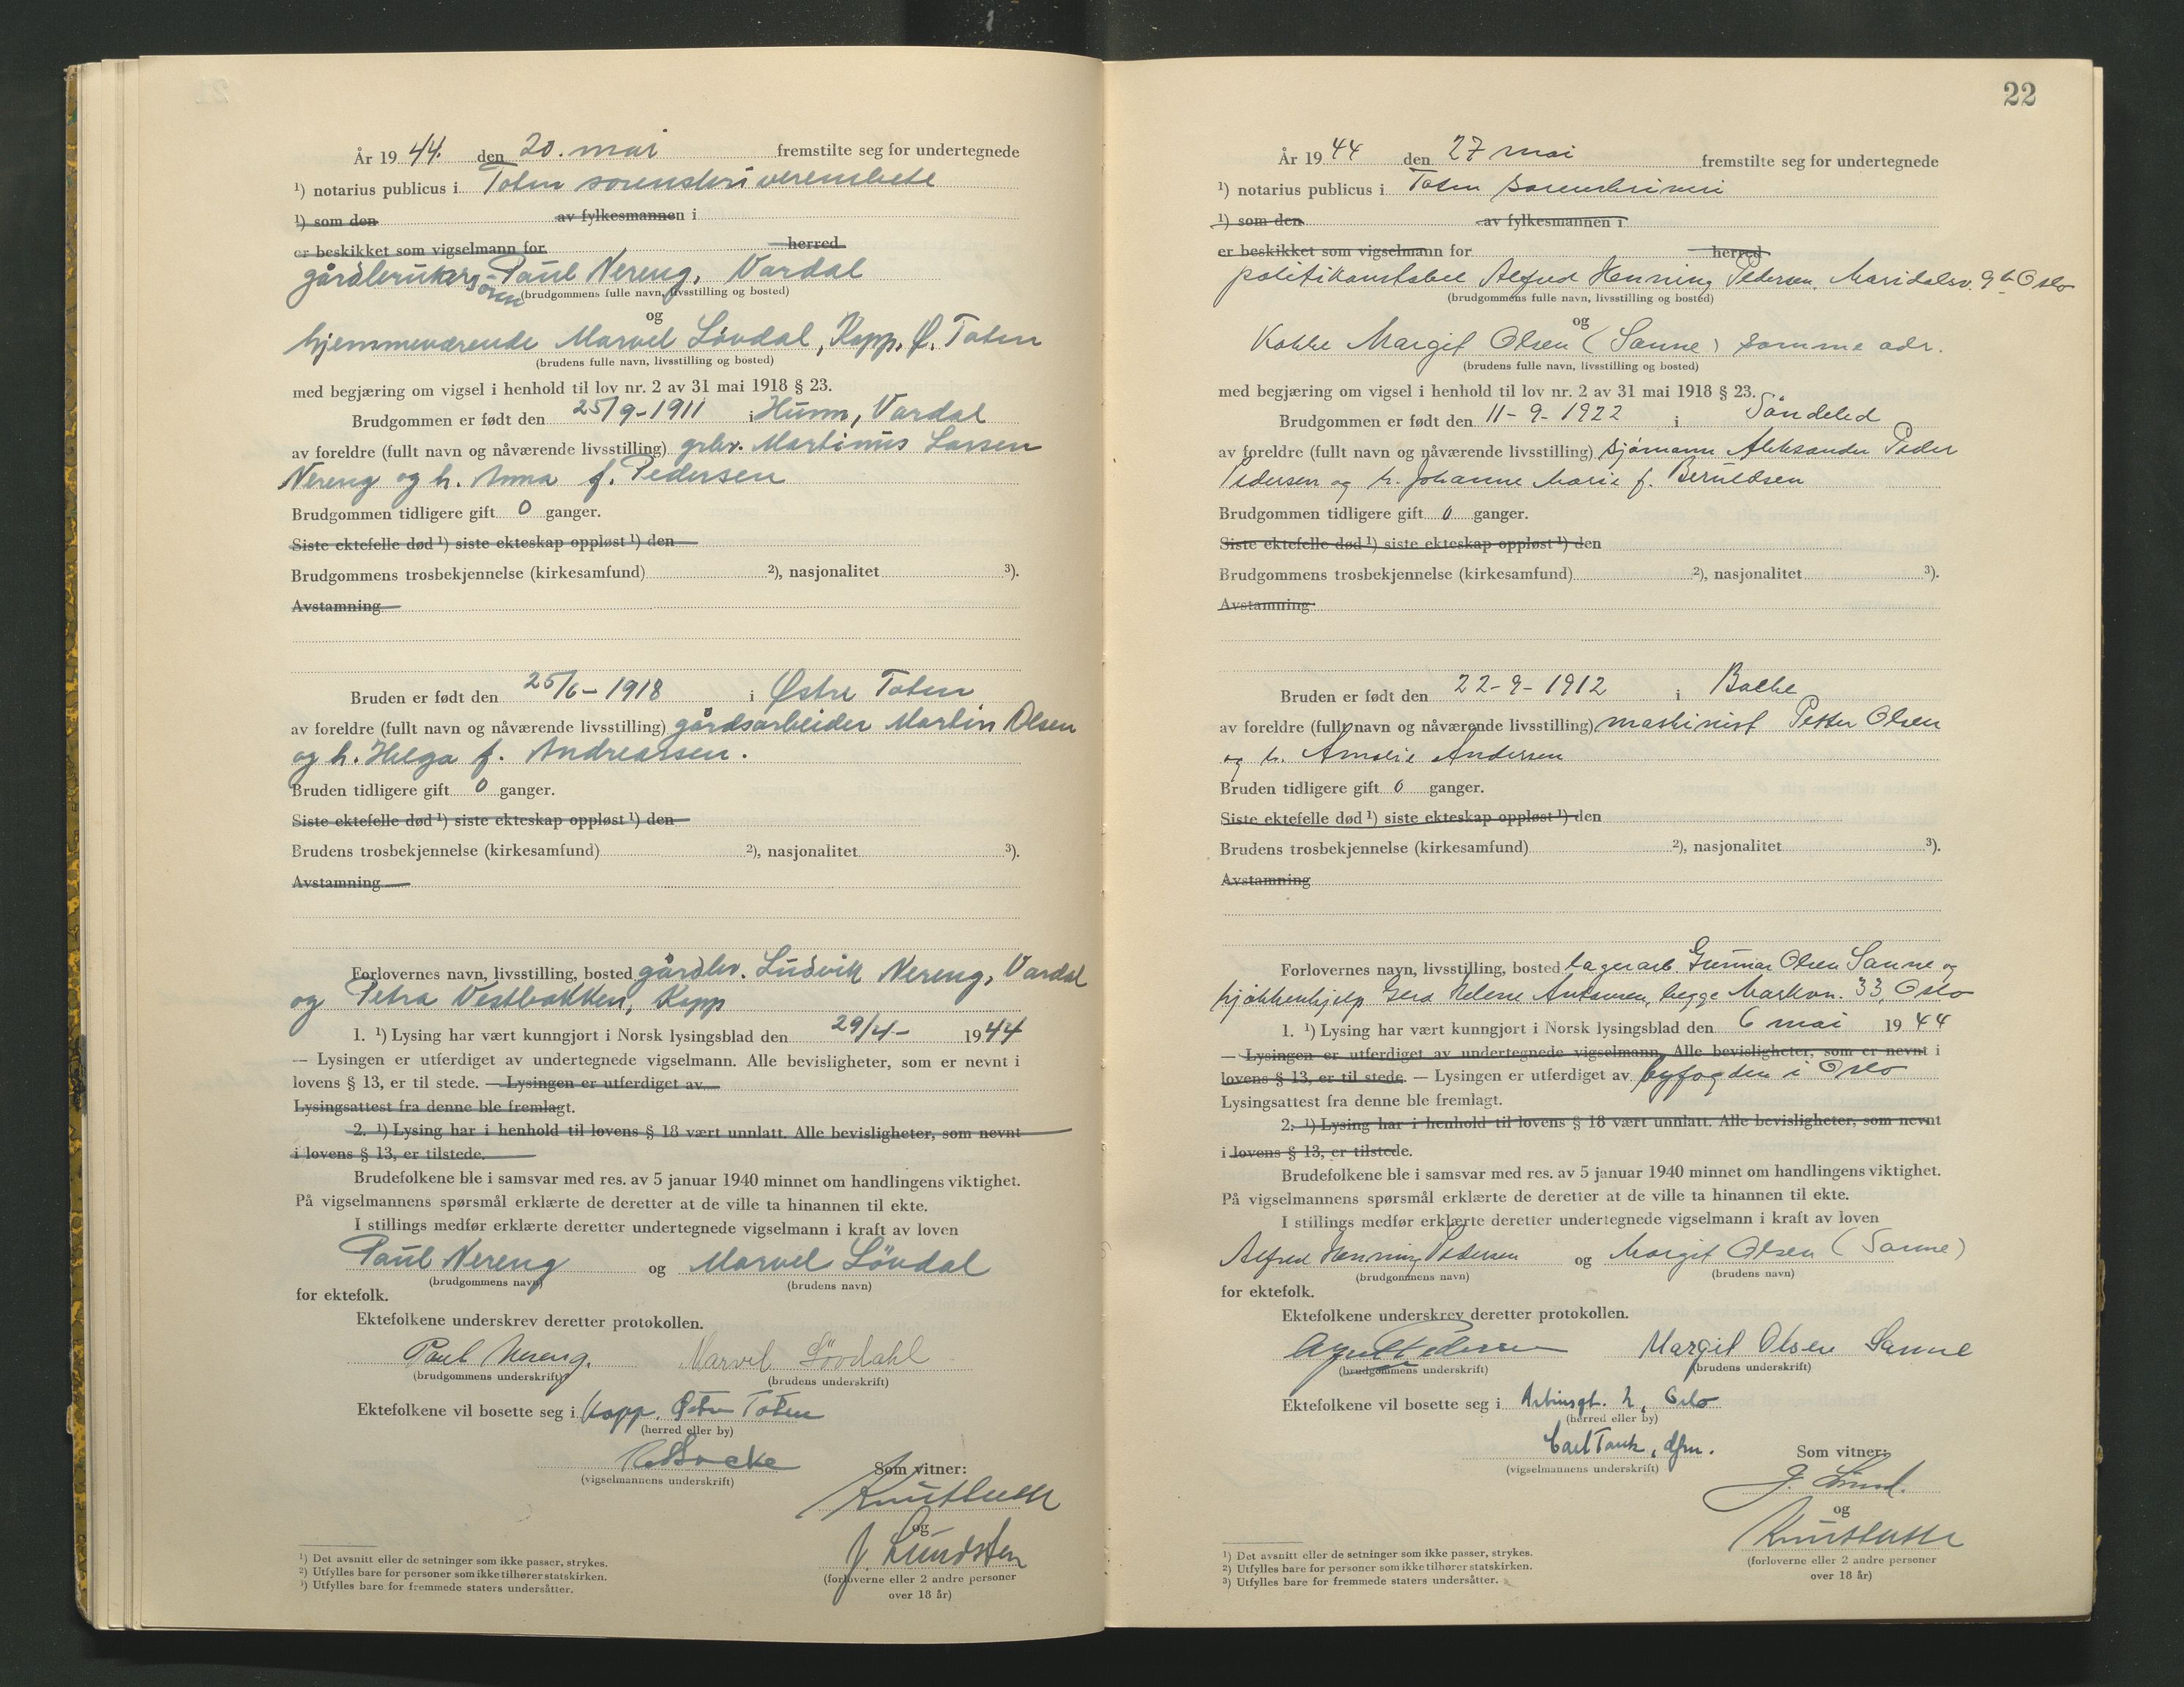 År 19 44. den 20. mai fremstilte seg for undertegnede
¹) notarius publicus i Toten sorenskriverembete
¹) som den av fylkesmannen i
er beskikket som vigselmann for herred
gårdbrukersønn Paul Nereng, Vardal
(brudgommens fulle navn, livsstilling og bosted)
og
hjemmeværende Marvel Løvdal, Kapp, Ø. Toten
(brudens fulle navn, livsstilling og bosted)
med begjæring om vigsel i henhold til lov nr. 2 av 31 mai 1918 § 23.
Brudgommen er født den 25/9-1911 i Hunn, Vardal
av foreldre (fullt navn og nåværende livsstilling) grbr. Martinus Larsen
Nereng og h. Anna f. Pedersen
Brudgommen tidligere gift 0 ganger.
Siste ektefelle død ¹) siste ekteskap oppløst ¹) den
Brudgommens trosbekjennelse (kirkesamfund) ²), nasjonalitet ³).
Avstamning
Bruden er født den 25/6-1918 i Østre Toten
av foreldre (fullt navn og nåværende livsstilling) gårdsarbeider Martin Olsen
og h. Helga f. Andreassen.
Bruden tidligere gift 0 ganger.
Siste ektefelle død ¹) siste ekteskap oppløst ¹) den
Brudens trosbekjennelse (kirkesamfund) ²), nasjonalitet ³).
Avstamning
Forlovernes navn, livsstilling, bosted gårdbr. Ludvik Nereng, Vardal
og Petra Vestbakken, Kapp
1. ¹) Lysing har vært kunngjort i Norsk lysingsblad den 29/4- 1944
— Lysingen er utferdiget av undertegnede vigselmann. Alle bevisligheter, som er nevnt i
lovens § 13, er til stede. — Lysingen er utferdiget av
Lysingsattest fra denne ble fremlagt.
2. ¹) Lysing har i henhold til lovens § 18 vært unnlatt. Alle bevisligheter, som nevnt
i lovens § 13, er tilstede.
Brudefolkene ble i samsvar med res. av 5 januar 1940 minnet om handlingens viktighet.
På vigselmannens spørsmål erklærte de deretter at de ville ta hinannen til ekte.
I stillings medfør erklærte deretter undertegnede vigselmann i kraft av loven
Paul Nereng og Marvel Løvdal
(brudgommens navn) (brudens navn)
for ektefolk.
Ektefolkene underskrev deretter protokollen.
Paul Nereng. Marvel Løvdahl
(brudgommens underskrift) (brudens underskrift)
Ektefolkene vil bosette seg i Kapp. Østre Toten
(herred eller by)
(vigselmannens underskrift)
Som vitner:
og
J Lundsten
(forloverne eller 2 andre personer
over 18 år)
¹) Det avsnitt eller de setninger som ikke passer, strykes.
²) Utfylles bare for personer som ikke tilhører statskirken.
³) Utfylles bare for fremmede staters undersåtter.
22
År 19 44 den 27 mai fremstilte seg for undertegnede
¹) notarius publicus i Toten sorenskriveri
¹) som den av fylkesmannen i
er beskikket som vigselmann for herred
politikonstabel Alfred Henning Pedersen, Maridalsv. 9 b Oslo
(brudgommens fulle navn, livsstilling og bosted)
og
Kokke Margit Olsen (Sanne) samme adr.
(brudens fulle navn, livsstilling og bosted)
med begjæring om vigsel i henhold til lov nr. 2 av 31 mai 1918 § 23.
Brudgommen er født den 11-9-1922 i Søndeled
av foreldre (fullt navn og nåværende livsstilling) sjømann Aleksander Peder
Pedersen og h. Johanne Marie f. Beruldsen
Brudgommen tidligere gift 0 ganger.
Siste ektefelle død ¹) siste ekteskap oppløst ¹) den
Brudgommens trosbekjennelse (kirkesamfund) ²), nasjonalitet ³).
Avstamning
Bruden er født den 22-9-1912 i Balke
av foreldre (fullt navn og nåværende livsstilling) maskinist Petter Olsen
og h. Amalie Andersen
Bruden tidligere gift 0 ganger.
Siste ektefelle død ¹) siste ekteskap oppløst ¹) den
Brudens trosbekjennelse (kirkesamfund) ²), nasjonalitet ³).
Avstamning
Forlovernes navn, livsstilling, bosted lagerarb. Gunnar Olsen Sanne og
kjøkkenhjelp Gerd Helene Antonsen, begge Markvn. 33, Oslo
1. ¹) Lysing har vært kunngjort i Norsk lysingsblad den 6 mai 19 44
— Lysingen er utferdiget av undertegnede vigselmann. Alle bevisligheter, som er nevnt i
lovens § 13, er til stede. — Lysingen er utferdiget av byfogden i Oslo
Lysingsattest fra denne ble fremlagt.
2. ¹) Lysing har i henhold til lovens § 18 vært unnlatt. Alle bevisligheter, som nevnt
i lovens § 13, er tilstede.
Brudefolkene ble i samsvar med res. av 5 januar 1940 minnet om handlingens viktighet.
På vigselmannens spørsmål erklærte de deretter at de ville ta hinannen til ekte.
I stillings medfør erklærte deretter undertegnede vigselmann i kraft av loven
Alfred Henning Pedersen og Margit Olsen (Sanne)
(brudgommens navn) (brudens navn)
for ektefolk.
Ektefolkene underskrev deretter protokollen.
Pedersen Margit Olsen Sanne
(brudgommens underskrift) (brudens underskrift)
Ektefolkene vil bosette seg i Oslo
(herred eller by)
Carl Tank, dfm.
(vigselmannens underskrift)
Som vitner:
J. Lund.
og
(forloverne eller 2 andre personer
over 18 år)
¹) Det avsnitt eller de setninger som ikke passer, strykes.
²) Utfylles bare for personer som ikke tilhører statskirken.
³) Utfylles bare for fremmede staters undersåtter.